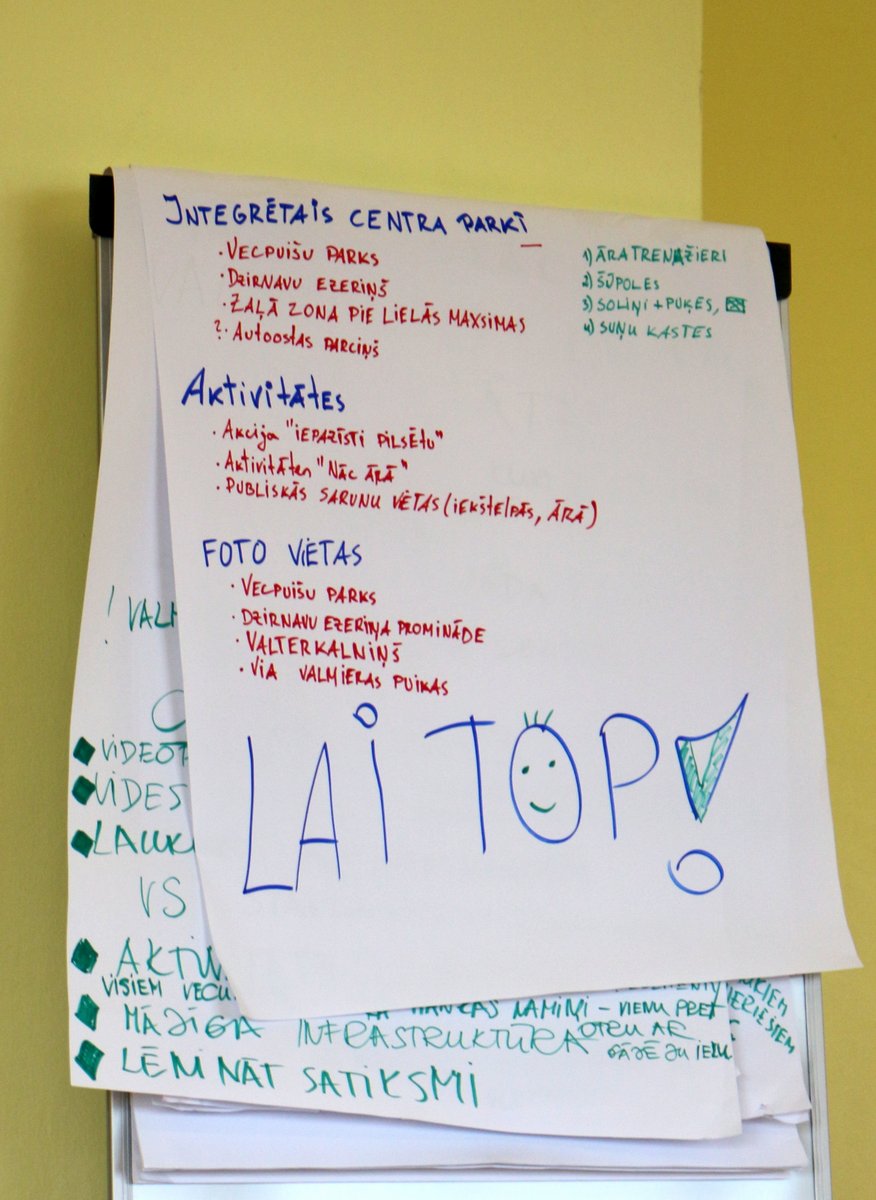 INTEGRĒTAIS CENTRA PARKĪ
· VECPUIŠU PARKS
· DZIRNAVU EZERIŅŠ
· ZAĻĀ ZONA PIE LIELĀS MAXSIMAS
?· AUTOOSTAS PARCIŅŠ
1) ĀRA TRENAŽIERI
2) ŠŪPOLES
3) SOLIŅI + PUĶES,
4) SUŅU KASTES
AKTIVITĀTES
· AKCIJA "IEPAZĪSTI PILSĒTU"
· AKTIVITĀTEN "NĀC ĀRĀ"
· PUBLISKĀS SARUNU VĒTAS (IEKŠTELPĀS, ĀRĀ)
FOTO VIĒTAS
· VECPUIŠU PARKS
· DZIRNAVU EZERIŅA PROMINĀDE
· VALTERKALNIŅŠ
· VIA VALMIERAS PUIKAS
LAI TOP!
! VALM
VIDEOT
VIDES
LAUK
VS
AKTIV
VISIEM VECU
MĀJĪGA INFRASTRUKTŪRA
NAMIŅI – VIENU PRET
OTRU AR
LĒNINĀT SATIKSMI